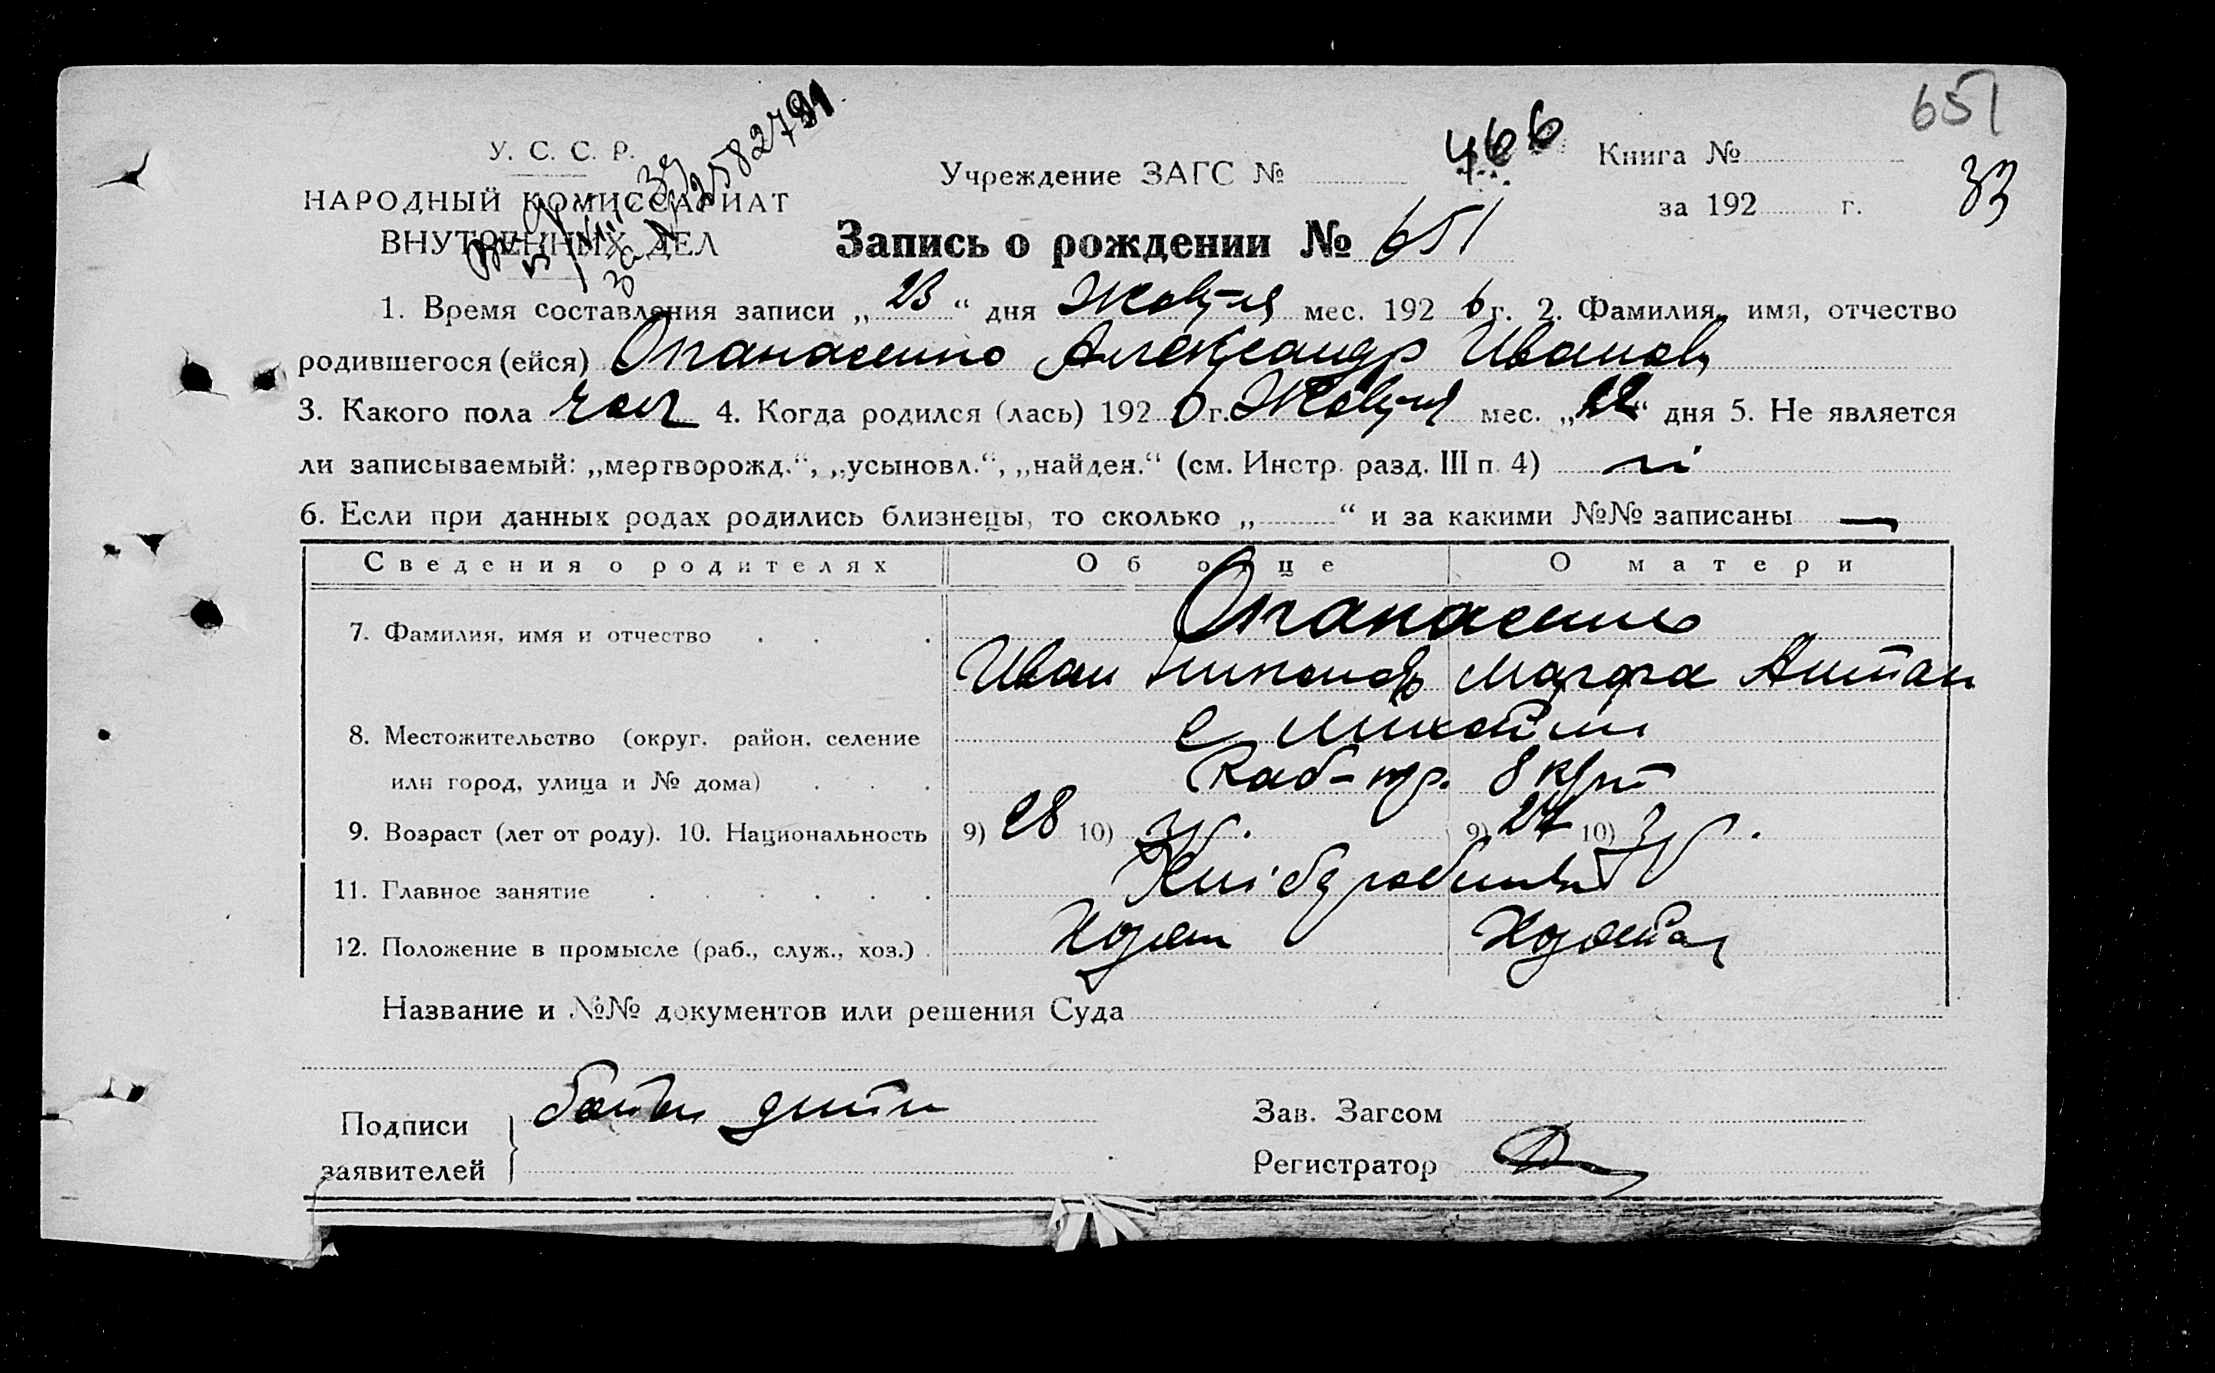 651
У. С. С. Р.
НАРОДНЫЙ КОМИССАРИАТ
ВНУТРЕННИХ ДЕЛ
2582791
Учреждение ЗАГС №
466
Книга №
за 192 г.
33
Запись о рождении № 651
1. Время составления записи „ 23 “ дня Жовтня мес. 192 6 г. 2. Фамилия, имя, отчество
родившегося (ейся) Опанасенко Александр Иванов
3. Какого пола чол 4. Когда родился (лась) 192 6 г. Жовтня мес. „ “ дня 5. Не является
ли записываемый: „мертворожд.“, „усыновл.“, „найден.“ (см. Инстр. разд. III п. 4) ні
6. Если при данных родах родились близнецы, то сколько „ “ и за какими №№ записаны —
Сведения о родителях Об отце О матери
Опанасенко
7. Фамилия, имя и отчество . . .
Иван Никонов Марфа Антон
8. Местожительство (округ, район, селение
или город, улица и № дома) . . .
9. Возраст (лет от роду). 10. Национальность 9) 28 10) 9) 24 10)
11. Главное занятие . . . . . . Хліборобство
12. Положение в промысле (раб., служ., хоз.) . Хозяин Хозяйка
Название и №№ документов или решения Суда
Подписи
заявителей
батьки дитини
Зав. Загсом
Регистратор